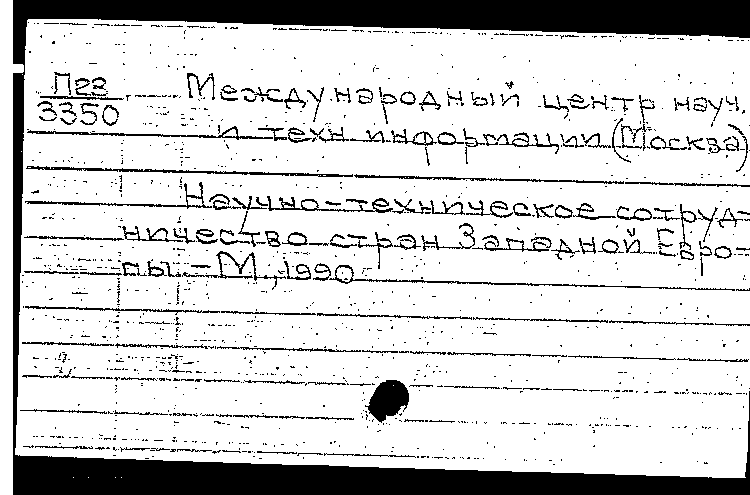 Пгз
3350
Международный центр науч.
и техн информации (Москва)
Научно-техническое сотруд-
ничество стран Западной Евро-
пы. - М., 1990